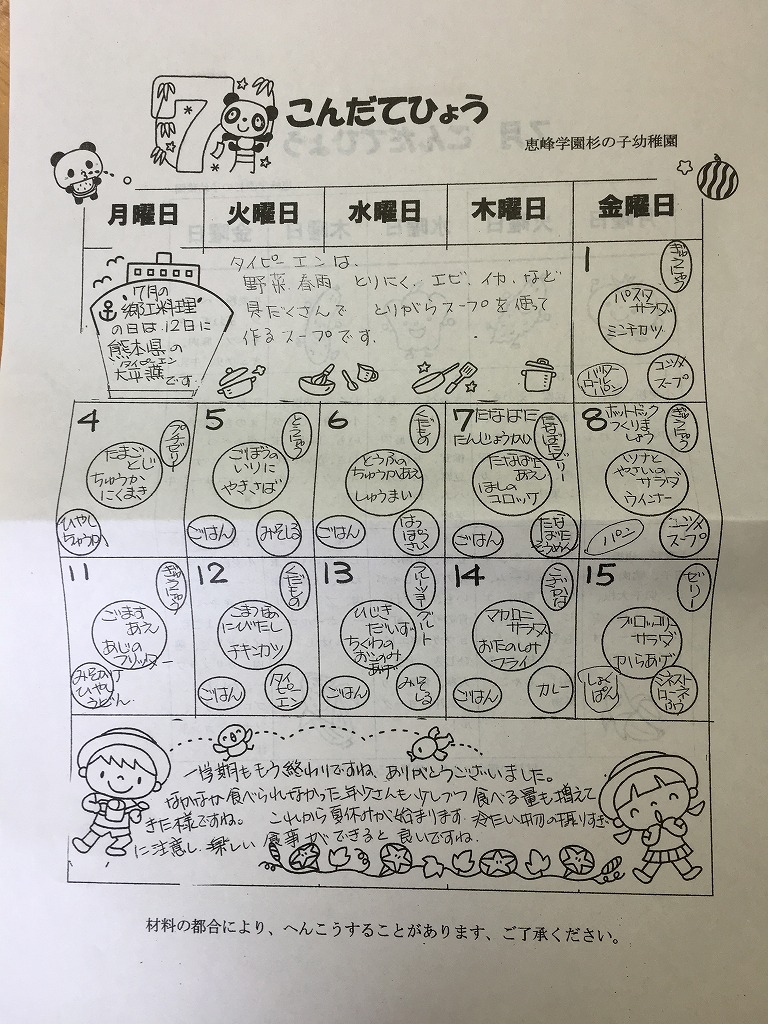 7
こんだてひょう
恵峰学園杉の子幼稚園
月曜日 火曜日 水曜日 木曜日 金曜日
7月の
"郷土料理"
の日は、12日に
熊本県の
タイピーエン
太平燕です
タイピーエンは、
野菜、春雨 とりにく、エビ、イカ、など
具だくさんで とりがらスープを使って
作るスープです。
1
ぎゅうにゅう
パスタ
サラダ
ミンチカツ
バター
ロール
パン
コンソメ
スープ
4
プチゼリー
たまご
とじ
ちゅうか
にくまき
ひやし
ちゅうか
5
とうにゅう
ごぼうの
いりに
やきさば
ごはん
みそしる
6
くだもの
とうふの
ちゅうかあえ
しゅうまい
ごはん
はっ
ぽう
さい
7 たなばた
たんじょうかい
たなばたゼリー
たなばた
あえ
ほしの
コロッケ
ごはん
たな
ばた
そうめん
8 ホットドック
つくりま
しょう
ぎゅうにゅう
ツナと
やさいの
サラダ
ウインナー
パン
コンソメ
スープ
11
ぎゅうにゅう
ごます
あえ
あじの
フリッター
みそかけ
ひやし
うどん
12
くだもの
こまつなの
にびたし
チキンカツ
ごはん
タイ
ピー
エン
13
フルーツヨーグルト
ひじき
だいず
ちくわの
おこのみ
あげ
ごはん
みそ
しる
14
こざかな
マカロニ
サラダ
おたのしみ
フライ
ごはん
カレー
15
ゼリー
ブロッコリー
サラダ
からあげ
しょく
ぱん
ミネスト
ローネ
一学期ももう終わりですね、ありがとうございました。
なかなか食べられなかった年少さんも少しづつ 食べる量も増えて
きた様ですね。 これから夏休みが始まります。冷たい物の摂りすぎ
に注意し、楽しい 食事ができると良いですね。
材料の都合により、へんこうすることがあります、ご了承ください。